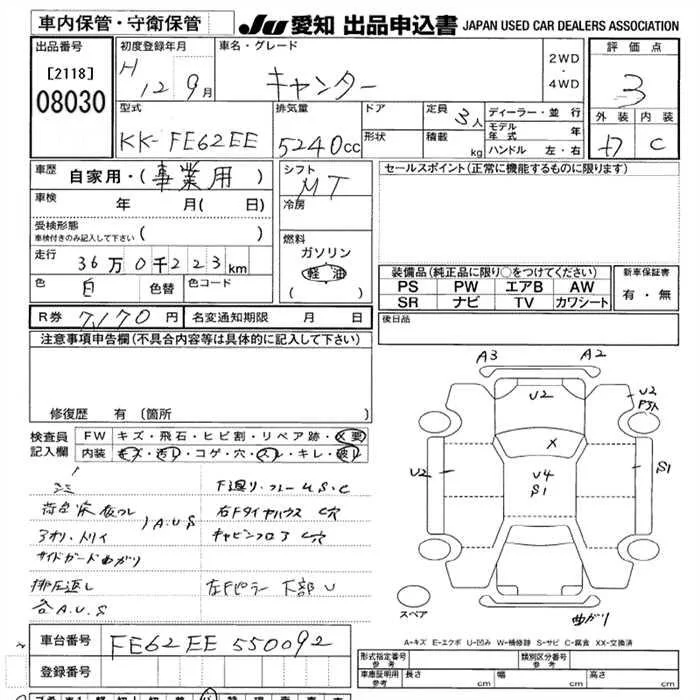 車内保管・守衛保管
JU 愛知 出品申込書 JAPAN USED CAR DEALERS ASSOCIATION
出品番号
[2118]
08030
初度登録年月
H 12 9月
車名・グレード
キャンター
2WD
・
4WD
評価点
3
外装 内装
C
型式
KK-FE62EE
排気量
5240cc
ドア
形状
定員 3人
積載 kg
ディーラー・並行
モデル年式 年
ハンドル 左・右
車歴
自家用・(事業用)
車検 年 月(日)
受検形態
車検付きのみ記入して下さい ( )
走行
36万0千223km
色 白 色替 色コード
シフト
MT
冷房
燃料
ガソリン
軽油
( )
セールスポイント(正常に機能するものに限ります)
装備品(純正品に限り○をつけてください)
PS PW エアB AW
SR ナビ TV カワシート
新車保証書
有・無
R券 7,170円 名変通知期限 月 日
後日品
注意事項申告欄(不具合内容等は具体的に記入して下さい)
修復歴 有 (箇所
検査員記入欄
FW キズ・飛石・ヒビ割・リペア跡・X要
内装 キズ・汚れ・コゲ・穴・スレ・キレ・破れ
荷台床板ワレ
アオリ、トリイ
A.U.S
サイドガード曲がり
排圧返し
各A.U.S
F廻り・フレームS・C
右Fタイヤハウス C穴
キャビンフロア C穴
左Fピラー下部U
A3 A2
U2
U2
X
U2
U4
S1
S1
スペア
曲がり
A-キズ E-エクボ U-凹み W-補修跡 S-サビ C-腐食 XX-交換済
車台番号
FE62EE 550092
登録番号
形式指定番号 参考
類別区分番号 参考
車庫証明用 参考
長さ cm 幅 cm 高さ cm